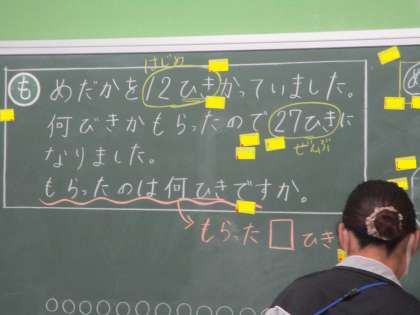 はじめ
も めだかを12ひきかっていました。
何びきかもらったので27ひきに
ぜんぶ
なりました。
もらったのは何びきですか。
もらった□ひき
め